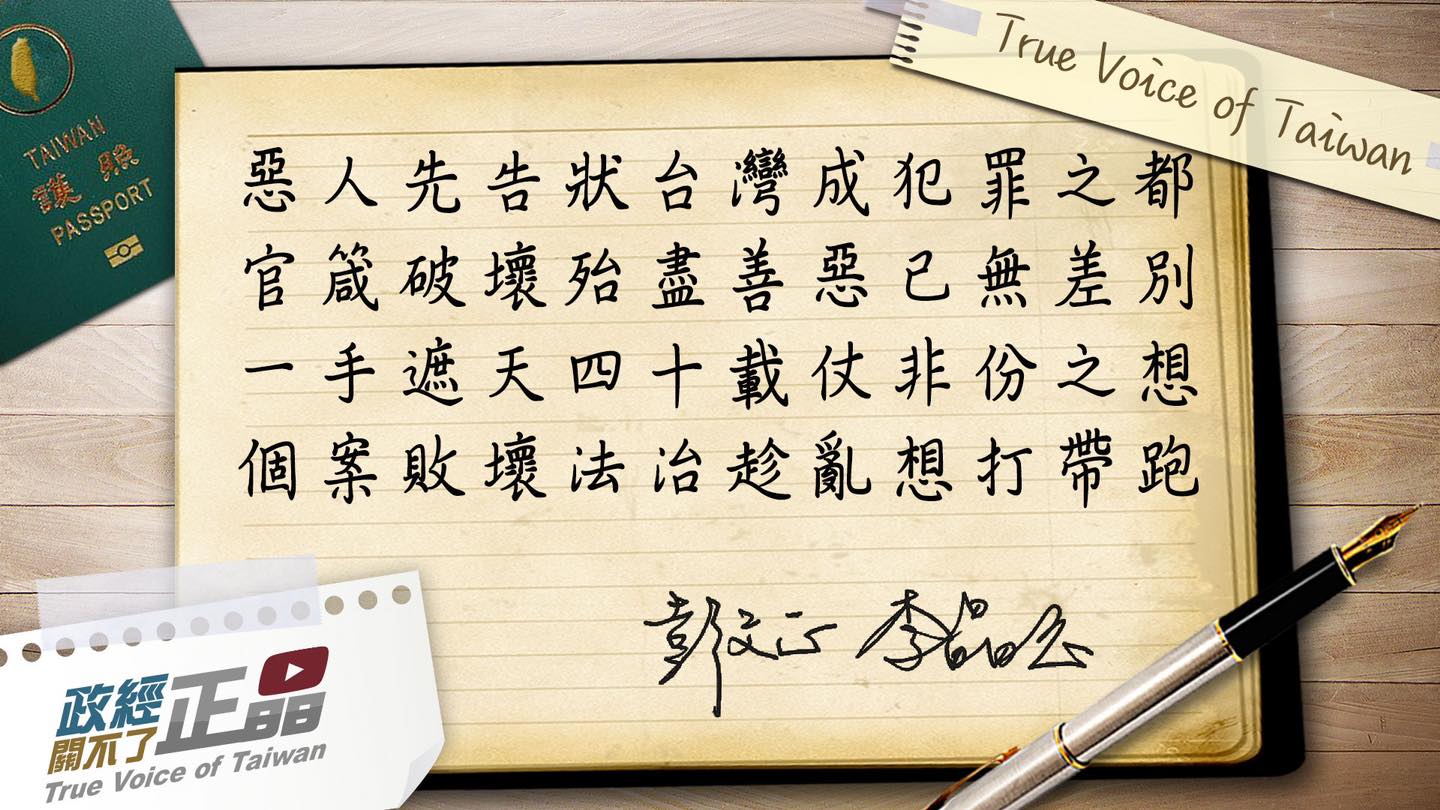 True Voice of Taiwan
TAIWAN
護照
PASSPORT
惡人先告狀台灣成犯罪之都
官箴破壞殆盡善惡已無差別
一手遮天四十載仗非份之想
個案敗壞法治趁亂想打帶跑
彭文正 李晶玉
政經
關不了
正晶
True Voice of Taiwan